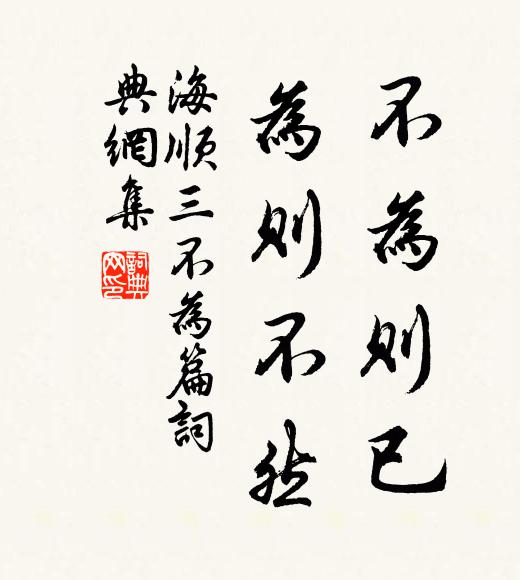 不為則已
為則不然
海順三不為篇詞
典網集
詞典
网印